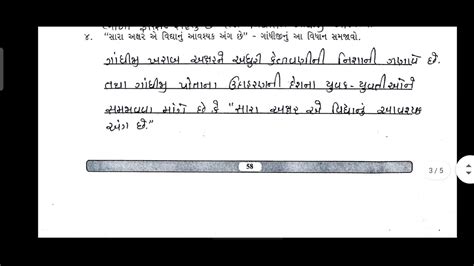 ૪. "સારા અક્ષરે એ વિદ્યાનું આવશ્યક અંગ છે" - ગાંધીજીનું આ વિધાન સમજાવો.
ગાંધીજી ખરાબ અક્ષરને અધુરી કેળવણીની નિશાની ગણાવે છે.
તથા ગાંધીજી પોતાના ઉદાહરણની દેશના યુવક - યુવતીઓને
સમજાવવા માંગે છે કે "સારા અક્ષર એ વિદ્યાનું આવશ્યક
અંગ છે."
58
3 / 5